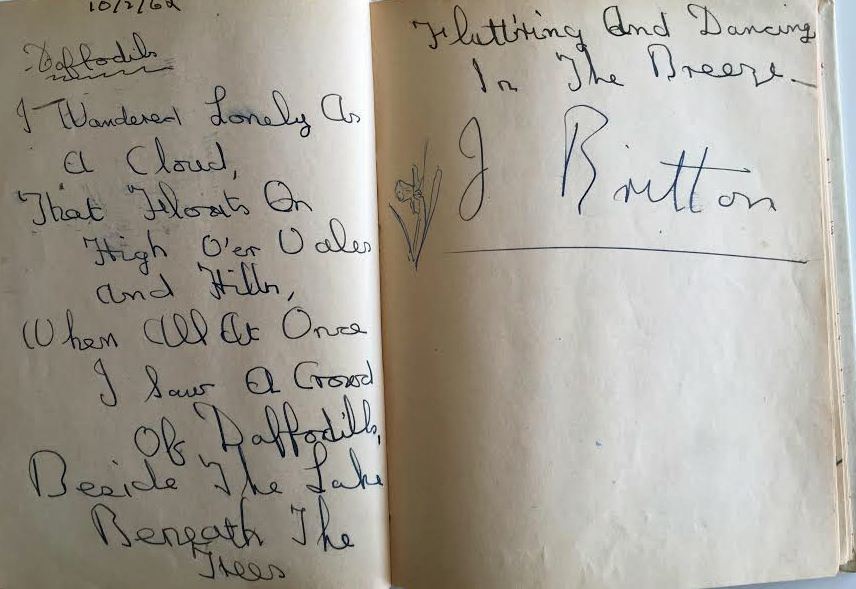 10/2/62
Daffodils
I Wandered Lonely As
A Cloud,
That Floats On
High O'er Vales
And Hills,
When All At Once
I Saw A Crowd
Of Daffodills,
Beside The Lake
Beneath The
Trees
Flutt'ring And Dancing
In The Breeze_
J Britton